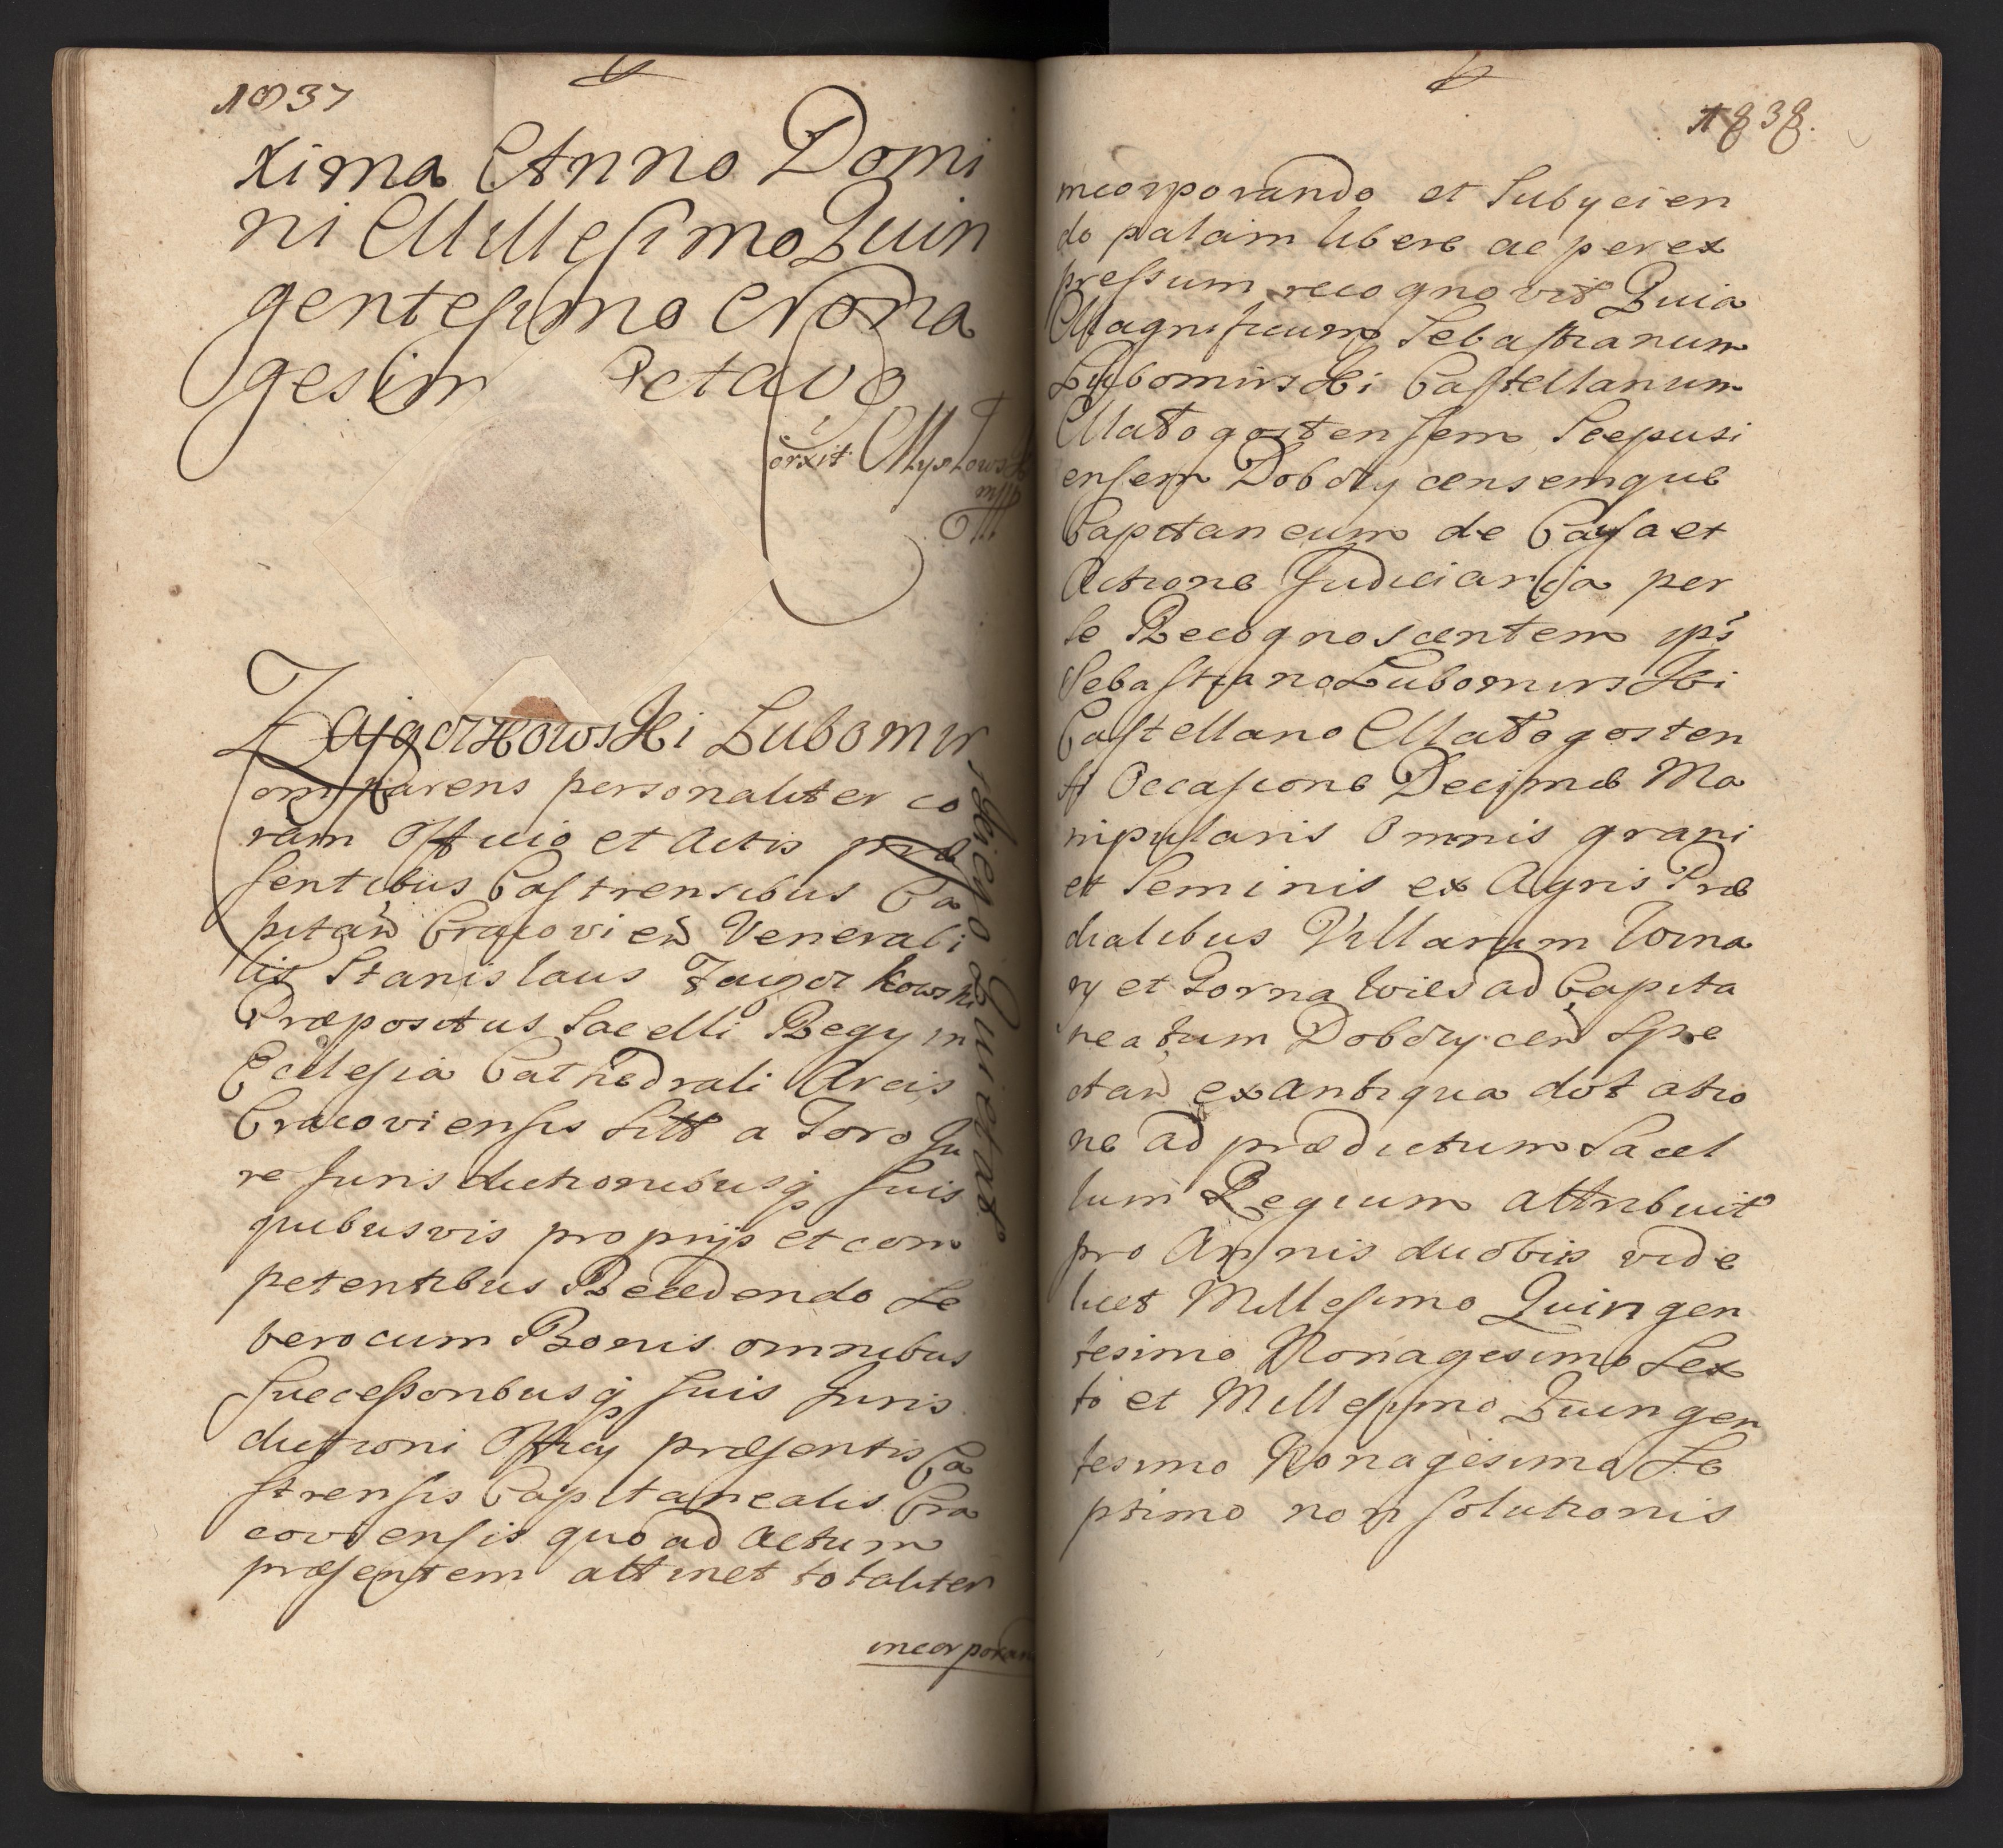 1837
xima Anno Domi
ni Millesimo Quin
gentesimo Nona
gesim Octavo
orxit Mysłows
mp
Zajgorzkowski Lubomir
skiego Quietat
omparens personaliter co
ram Officio et Actis præ
sentibus Castrensibus Ca
pitan Cracovien Venerabi
lis Stanislaus Zaigorzkowski
Præpositus Sacelli Regy in
Ecclesia Cathedrali Arcis
Cracoviensis Sitt a Foro Ju
re Jurisdictionibusq suis
quibusvis proprijs et com
petentibus Recedendo Se
vero cum Bonis omnibus
Successoribusq suis Juris
dictioni Officy præsentis Ca
strensis Capitanealis Cra
coviensis quo ad Actum
præsentem attinet totaliter
incorporan
1838.
incorporando et Subycien
do palam libere ac per ex
pressum recognovit Quia
Magnificum Sebastianum
Lubomirski Castellanum
Małogostensem Scepusi
ensem Dobczycensemque
Capitaneum de Causa et
Actione Judiciaria per
se Recognoscentem ips
Sebastiano Lubomirski
Castellano Małogosten
si Occasione Decimæ Ma
nipularis Omnis grani
et Seminis ex Agris Præ
dialibus Villarum Wina
ry et Gorna Wies ad Capita
neatum Dobczycen Spe
ctan ex antiqua dotatio
ne ad prædictum Sacel
lum Regium attribuit
pro Annis duobus vide
licet Millesimo Quingen
tesimo Nonagesimo Sex
to et Millesimo Quingen
tesimo Nonagesimo Se
ptimo non solutionis